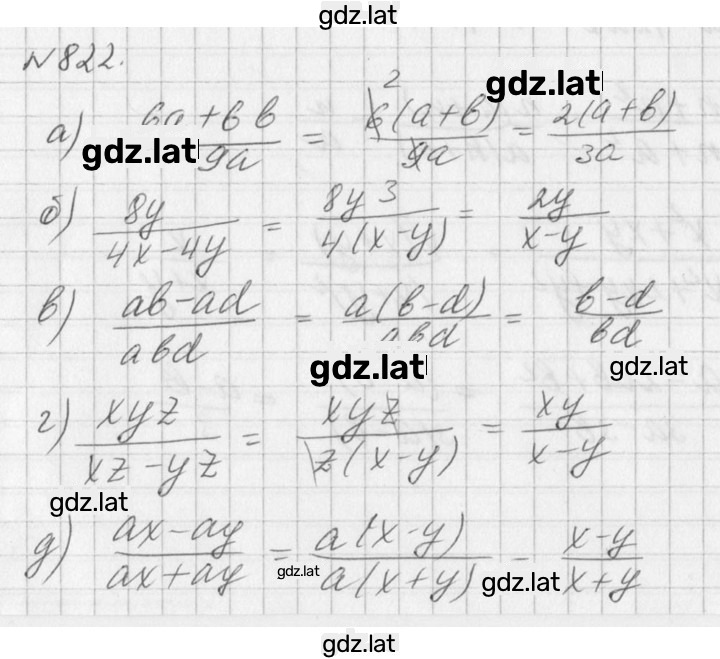 gdz.lat
N 822.
gdz.lat
а) 6a+6b / 9a = 6(a+b) / 9a = 2(a+b) / 3a
2
gdz.lat
б) 8y / 4x-4y = 8y 3 / 4(x-y) = 2y / x-y
в) ab-ad / abd = a(b-d) / abd = b-d / bd
gdz.lat
gdz.lat
г) xyz / xz-yz = xyz / z(x-y) = xy / x-y
gdz.lat
д) ax-ay / ax+ay = a(x-y) / a(x+y) = x-y / x+y
gdz.lat
gdz.lat
gdz.lat